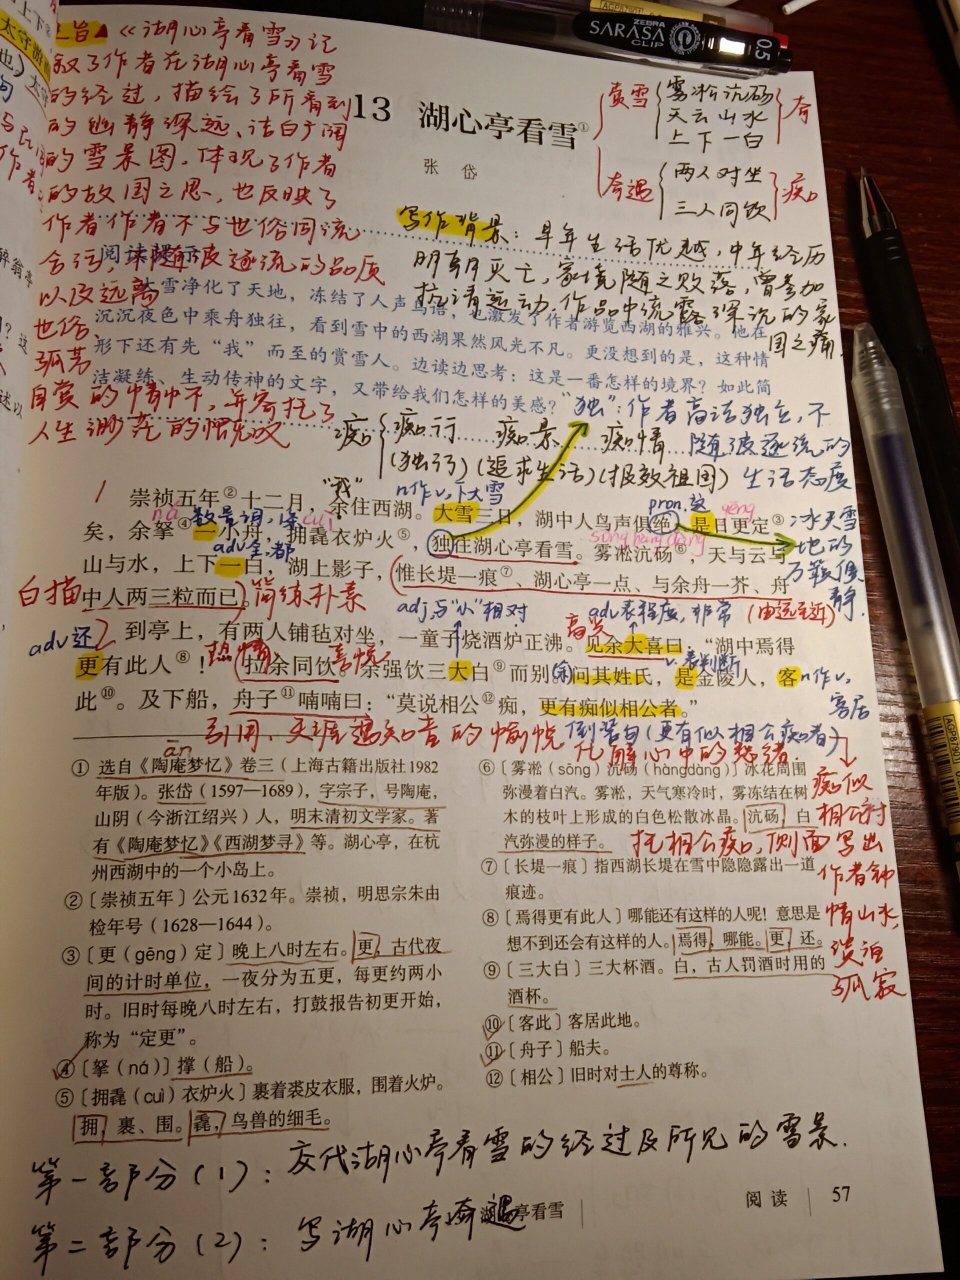 ZEBRA
SARASA
CLIP
0.5
主旨▲《湖心亭看雪》记
叙了作者在湖心亭看雪
的经过，描绘了所看到
的幽静深远、洁白广阔
的雪景图，体现了作者
的故国之思，也反映了
作者作者不与世俗同流
合污，不随波逐流的品质
以及远离
世俗
孤芳
自赏的情怀，并寄托了
人生渺茫的慨叹
13 湖心亭看雪①
张岱
赏雪
雾凇沆砀
天云山水
上下一白
奇
奇遇
两人对坐
三人同饮
痴
写作背景：早年生活优越，中年经历
明朝灭亡，家境随之败落，曾参加
抗清运动，作品中流露深沉的家
国之痛
阅读提示
大雪净化了天地，冻结了人声鸟语，也激发了作者游览西湖的雅兴。他在
沉沉夜色中乘舟独往，看到雪中的西湖果然风光不凡。更没想到的是，这种情
形下还有先“我”而至的赏雪人。边读边思考：这是一番怎样的境界？如此简
洁凝练、生动传神的文字，又带给我们怎样的美感？
“独”：作者高洁独立，不
随波逐流的
生活态度
痴 痴行 痴景 痴情
(独行)(追求生活)(报效祖国)
1
“我”
n作v，下大雪
pron.这
gēng
崇祯五年②十二月，余住西湖。大雪三日，湖中人鸟声俱绝，是日更定③
ná
数量词，一
cuì
sōng hàng dàng
冰天雪
地的
万籁俱
静
矣，余拏④一小舟，拥毳衣炉火⑤，独往湖心亭看雪。雾凇沆砀⑥，天与云与
adv全，都
山与水，上下一白，湖上影子，惟长堤一痕⑦、湖心亭一点、与余舟一芥、舟
白描
中人两三粒而已。
简练朴素
adj，与“小”相对
adv表程度，非常
(由远至近)
2
高兴
到亭上，有两人铺毡对坐，一童子烧酒炉正沸。见余大喜曰：“湖中焉得
adv还
热情
喜悦
v.表判断
更有此人⑧！”拉余同饮。余强饮三大白⑨而别。问其姓氏，是金陵人，客
(余)
n作v，
客居
此⑩。及下船，舟子⑪喃喃曰：“莫说相公⑫痴，更有痴似相公者。”
引用，天涯遇知音的愉悦
倒装句(更有似相公痴者)
化解心中的愁绪
ān
痴似
相公衬
托相公痴，侧面写出
作者钟
情山水，
淡泊
孤寂
① 选自《陶庵梦忆》卷三（上海古籍出版社1982
年版）。张岱（1597—1689），字宗子，号陶庵，
山阴（今浙江绍兴）人，明末清初文学家。著
有《陶庵梦忆》《西湖梦寻》等。湖心亭，在杭
州西湖中的一个小岛上。
②〔崇祯五年〕公元1632年。崇祯，明思宗朱由
检年号（1628—1644）。
③〔更（gēng）定〕晚上八时左右。更，古代夜
间的计时单位，一夜分为五更，每更约两小
时。旧时每晚八时左右，打鼓报告初更开始，
称为“定更”。
④〔拏（ná）〕撑（船）。
⑤〔拥毳（cuì）衣炉火〕裹着裘皮衣服，围着火炉。
拥，裹、围。毳，鸟兽的细毛。
⑥〔雾凇（sōng）沆砀（hàngdàng）〕冰花周围
弥漫着白汽。雾凇，天气寒冷时，雾冻结在树
木的枝叶上形成的白色松散冰晶。沆砀，白
汽弥漫的样子。
⑦〔长堤一痕〕指西湖长堤在雪中隐隐露出一道
痕迹。
⑧〔焉得更有此人〕哪能还有这样的人呢！意思是
想不到还会有这样的人。焉得，哪能。更，还。
⑨〔三大白〕三大杯酒。白，古人罚酒时用的
酒杯。
⑩〔客此〕客居此地。
⑪〔舟子〕船夫。
⑫〔相公〕旧时对士人的尊称。
第一部分(1)：交代湖心亭看雪的经过及所见的雪景.
第二部分(2)：写湖心亭奇遇
湖心亭看雪
阅读 57